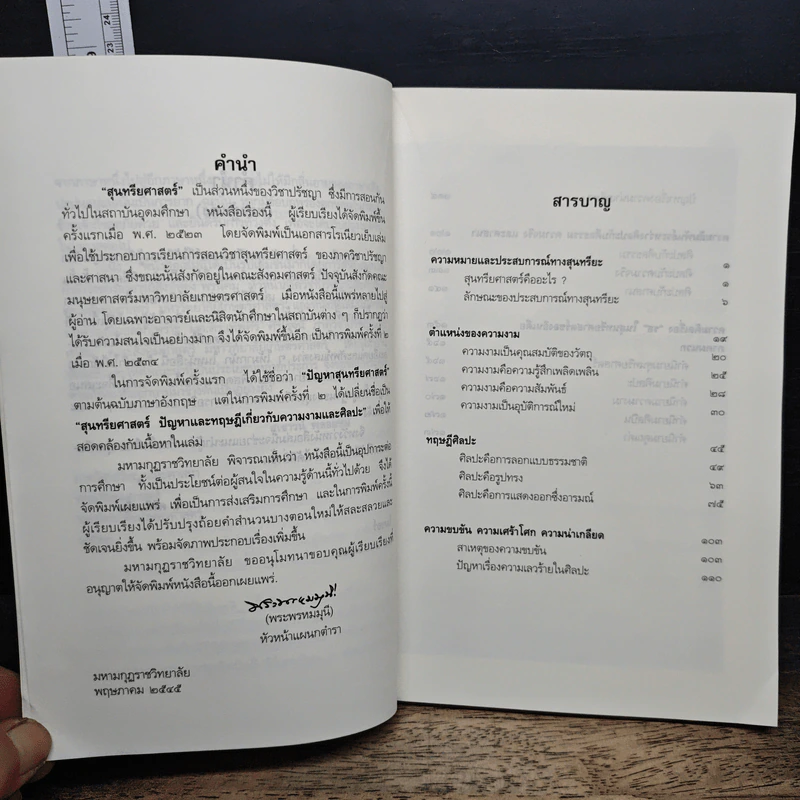 24
23
9
คำนำ
"สุนทรียศาสตร์" เป็นส่วนหนึ่งของวิชาปรัชญา ซึ่งมีการสอนกัน
ทั่วไปในสถาบันอุดมศึกษา หนังสือเรื่องนี้ ผู้เรียบเรียงได้จัดพิมพ์ขึ้น
ครั้งแรกเมื่อ พ.ศ. ๒๕๒๓ โดยจัดพิมพ์เป็นเอกสารโรเนียวเย็บเล่ม
เพื่อใช้ประกอบการเรียนการสอนวิชาสุนทรียศาสตร์ ของภาควิชาปรัชญา
และศาสนา ซึ่งขณะนั้นสังกัดอยู่ในคณะสังคมศาสตร์ ปัจจุบันสังกัดคณะ
มนุษยศาสตร์มหาวิทยาลัยเกษตรศาสตร์ เมื่อหนังสือนี้แพร่หลายไปสู่
ผู้อ่าน โดยเฉพาะอาจารย์และนิสิตนักศึกษาในสถาบันต่าง ๆ ก็ปรากฏว่า
ได้รับความสนใจเป็นอย่างมาก จึงได้จัดพิมพ์ขึ้นอีก เป็นการพิมพ์ครั้งที่ ๒
เมื่อ พ.ศ. ๒๕๓๔
ในการจัดพิมพ์ครั้งแรก ได้ใช้ชื่อว่า "ปัญหาสุนทรียศาสตร์"
ตามต้นฉบับภาษาอังกฤษ แต่ในการพิมพ์ครั้งที่ ๒ ได้เปลี่ยนชื่อเป็น
"สุนทรียศาสตร์ ปัญหาและทฤษฎีเกี่ยวกับความงามและศิลปะ" เพื่อให้
สอดคล้องกับเนื้อหาในเล่ม
มหามกุฏราชวิทยาลัย พิจารณาเห็นว่า หนังสือนี้เป็นอุปการะต่อ
การศึกษา ทั้งเป็นประโยชน์ต่อผู้สนใจในความรู้ด้านนี้ทั่วไปด้วย จึงได้
จัดพิมพ์เผยแพร่ เพื่อเป็นการส่งเสริมการศึกษา และในการพิมพ์ครั้งนี้
ผู้เรียบเรียงได้ปรับปรุงถ้อยคำสำนวนบางตอนใหม่ให้สละสลวยและ
ชัดเจนยิ่งขึ้น พร้อมจัดภาพประกอบเรื่องเพิ่มขึ้น
มหามกุฏราชวิทยาลัย ขออนุโมทนาขอบคุณผู้เรียบเรียงที่
อนุญาตให้จัดพิมพ์หนังสือนี้ออกเผยแพร่.
(พระพรหมมุนี)
หัวหน้าแผนกตำรา
มหามกุฏราชวิทยาลัย
พฤษภาคม ๒๕๔๕
สารบาญ
ความหมายและประสบการณ์ทางสุนทรียะ ๑
สุนทรียศาสตร์คืออะไร ? ๑
ลักษณะของประสบการณ์ทางสุนทรียะ ๖
ตำแหน่งของความงาม ๑๙
ความงามเป็นคุณสมบัติของวัตถุ ๒๐
ความงามคือความรู้สึกเพลิดเพลิน ๒๕
ความงามคือความสัมพันธ์ ๒๘
ความงามเป็นอุบัติการณ์ใหม่ ๓๐
ทฤษฎีศิลปะ ๔๕
ศิลปะคือการลอกแบบธรรมชาติ ๔๙
ศิลปะคือรูปทรง ๖๓
ศิลปะคือการแสดงออกซึ่งอารมณ์ ๗๕
ความขบขัน ความเศร้าโศก ความน่าเกลียด ๑๐๓
สาเหตุของความขบขัน ๑๐๓
ปัญหาเรื่องความเลวร้ายในศิลปะ ๑๑๐